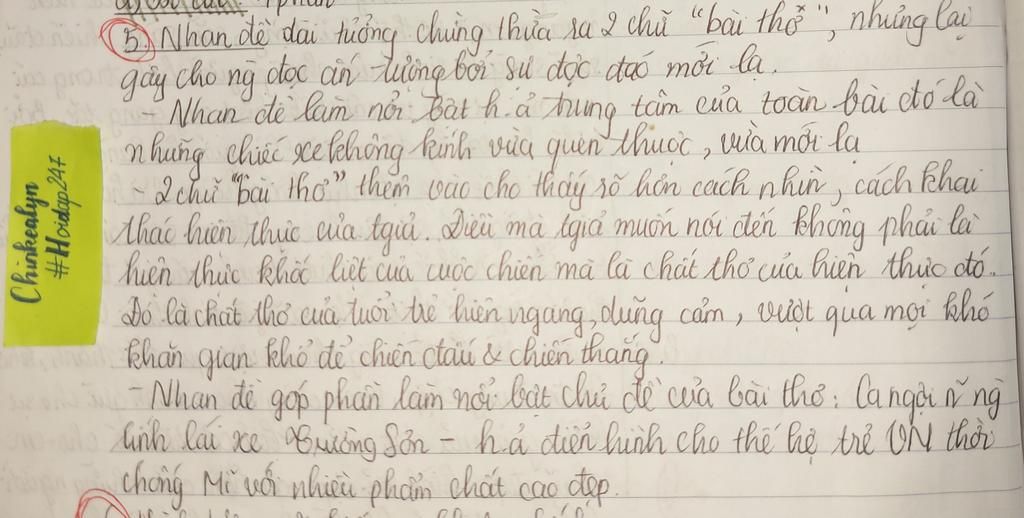 5. Nhan đề dài tưởng chừng thừa ra 2 chữ "bài thơ", nhưng lại
gây cho ng đọc ấn tượng bởi sự độc đáo mới lạ.
- Nhan đề làm nổi bật h.ả trung tâm của toàn bài đó là
những chiếc xe không kính vừa quen thuộc, vừa mới lạ
- 2 chữ "bài thơ" thêm vào cho thấy rõ hơn cách nhìn, cách khai
thác hiện thực của tgiả. Điều mà tgiả muốn nói đến không phải là
hiện thực khốc liệt của cuộc chiến mà là chất thơ của hiện thực đó.
Đó là chất thơ của tuổi trẻ hiên ngang, dũng cảm, vượt qua mọi khó
khăn gian khổ để chiến đấu & chiến thắng.
- Nhan đề góp phần làm nổi bật chủ đề của bài thơ: ca ngợi n~ ng
lính lái xe Trường Sơn - h.ả điển hình cho thế hệ trẻ VN thời
chống Mĩ với nhiều phẩm chất cao đẹp.
Chinkealyn
#Hoidap247